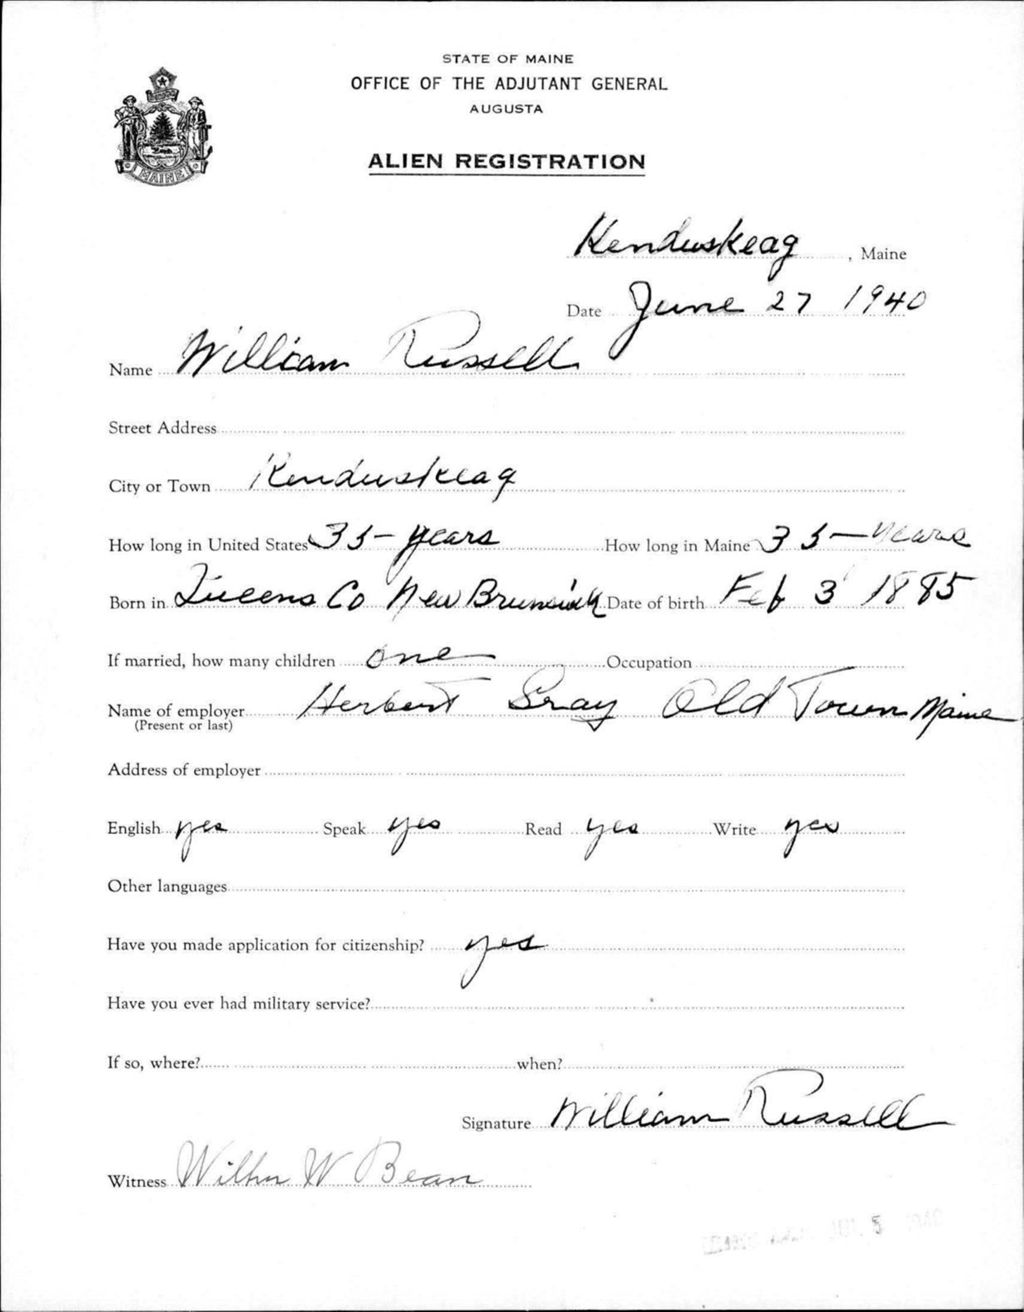 STATE OF MAINE
OFFICE OF THE ADJUTANT GENERAL
AUGUSTA
ALIEN REGISTRATION
MAINE
Kenduskeag, Maine
Date June 27 1940
Name William Russell
Street Address
City or Town Kenduskeag
How long in United States 35- years How long in Maine 35- years
Born in Queens Co New Brunswick Date of birth Feb 3 1885
If married, how many children one Occupation
Name of employer Herbert Gray Old Town Maine
(Present or last)
Address of employer
English yes Speak yes Read yes Write yes
Other languages
Have you made application for citizenship? yes
Have you ever had military service?
If so, where? when?
Signature William Russell
Witness Wilbur W Bean